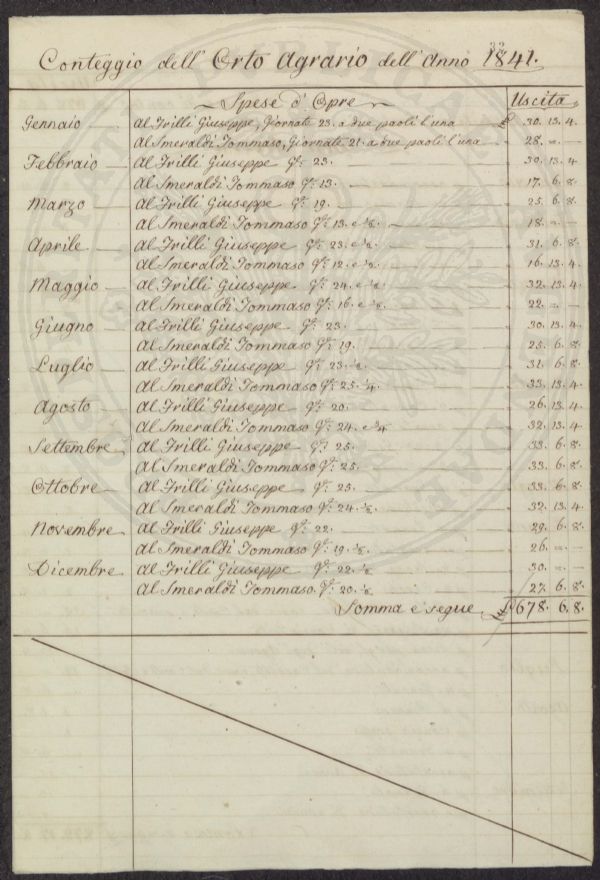 Conteggio dell' Orto Agrario dell' Anno 1841.
Spese d' Opre Uscita
Gennaio Al Frilli Giuseppe, Giornate 23. a due paoli l'una £ 30. 13. 4.
Al Smeraldi Tommaso, Giornate 21. a due paoli l'una 28. = —
Febbraio Al Frilli Giuseppe Gte. 23. 30. 13. 4
Al Smeraldi Tommaso Gte. 13. 17. 6. 8.
Marzo Al Frilli Giuseppe Gte. 19. 25. 6. 8.
Al Smeraldi Tommaso Gte. 13. e ½. 18. = —
Aprile Al Frilli Giuseppe Gte. 23. e ½. 31. 6. 8.
Al Smeraldi Tommaso Gte. 12. e ½. 16. 13. 4.
Maggio Al Frilli Giuseppe Gte. 24. e ½. 32. 13. 4
Al Smeraldi Tommaso Gte. 16. e ½. 22. = —
Giugno Al Frilli Giuseppe Gte. 23. 30. 13. 4
Al Smeraldi Tommaso Gte. 19. 25. 6. 8.
Luglio Al Frilli Giuseppe Gte. 23. ½. 31. 6. 8.
Al Smeraldi Tommaso Gte. 25. ¼. 33. 13. 4
Agosto Al Frilli Giuseppe Gte. 20. 26. 13. 4
Al Smeraldi Tommaso Gte. 24. e 32. 13. 4
Settembre Al Frilli Giuseppe Gte. 25. 33. 6. 8.
Al Smeraldi Tommaso Gte. 25. 33. 6. 8.
Ottobre Al Frilli Giuseppe Gte. 25. 33. 6. 8
Al Smeraldi Tommaso Gte. 24. ½. 32. 13. 4
Novembre Al Frilli Giuseppe Gte. 22. 29. 6. 8.
Al Smeraldi Tommaso Gte. 19. ½. 26. = —
Dicembre Al Frilli Giuseppe Gte. 22. ½. 30. = —
Al Smeraldi Tommaso. Gte. 20. ½. 27. 6. 8.
Somma e segue £ 678. 6. 8.